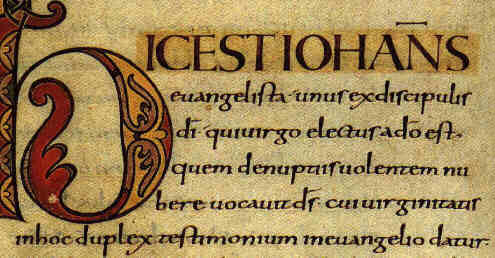 HICESTIOHAN̄S
euangelista· unus exdiscipulis
dī· quiuirgo electus adō est·
quem denuptiis uolentem nu
bere uocauit ds̄· cuiuirginitatis
inhoc duplex testimonium ineuangelio datur·